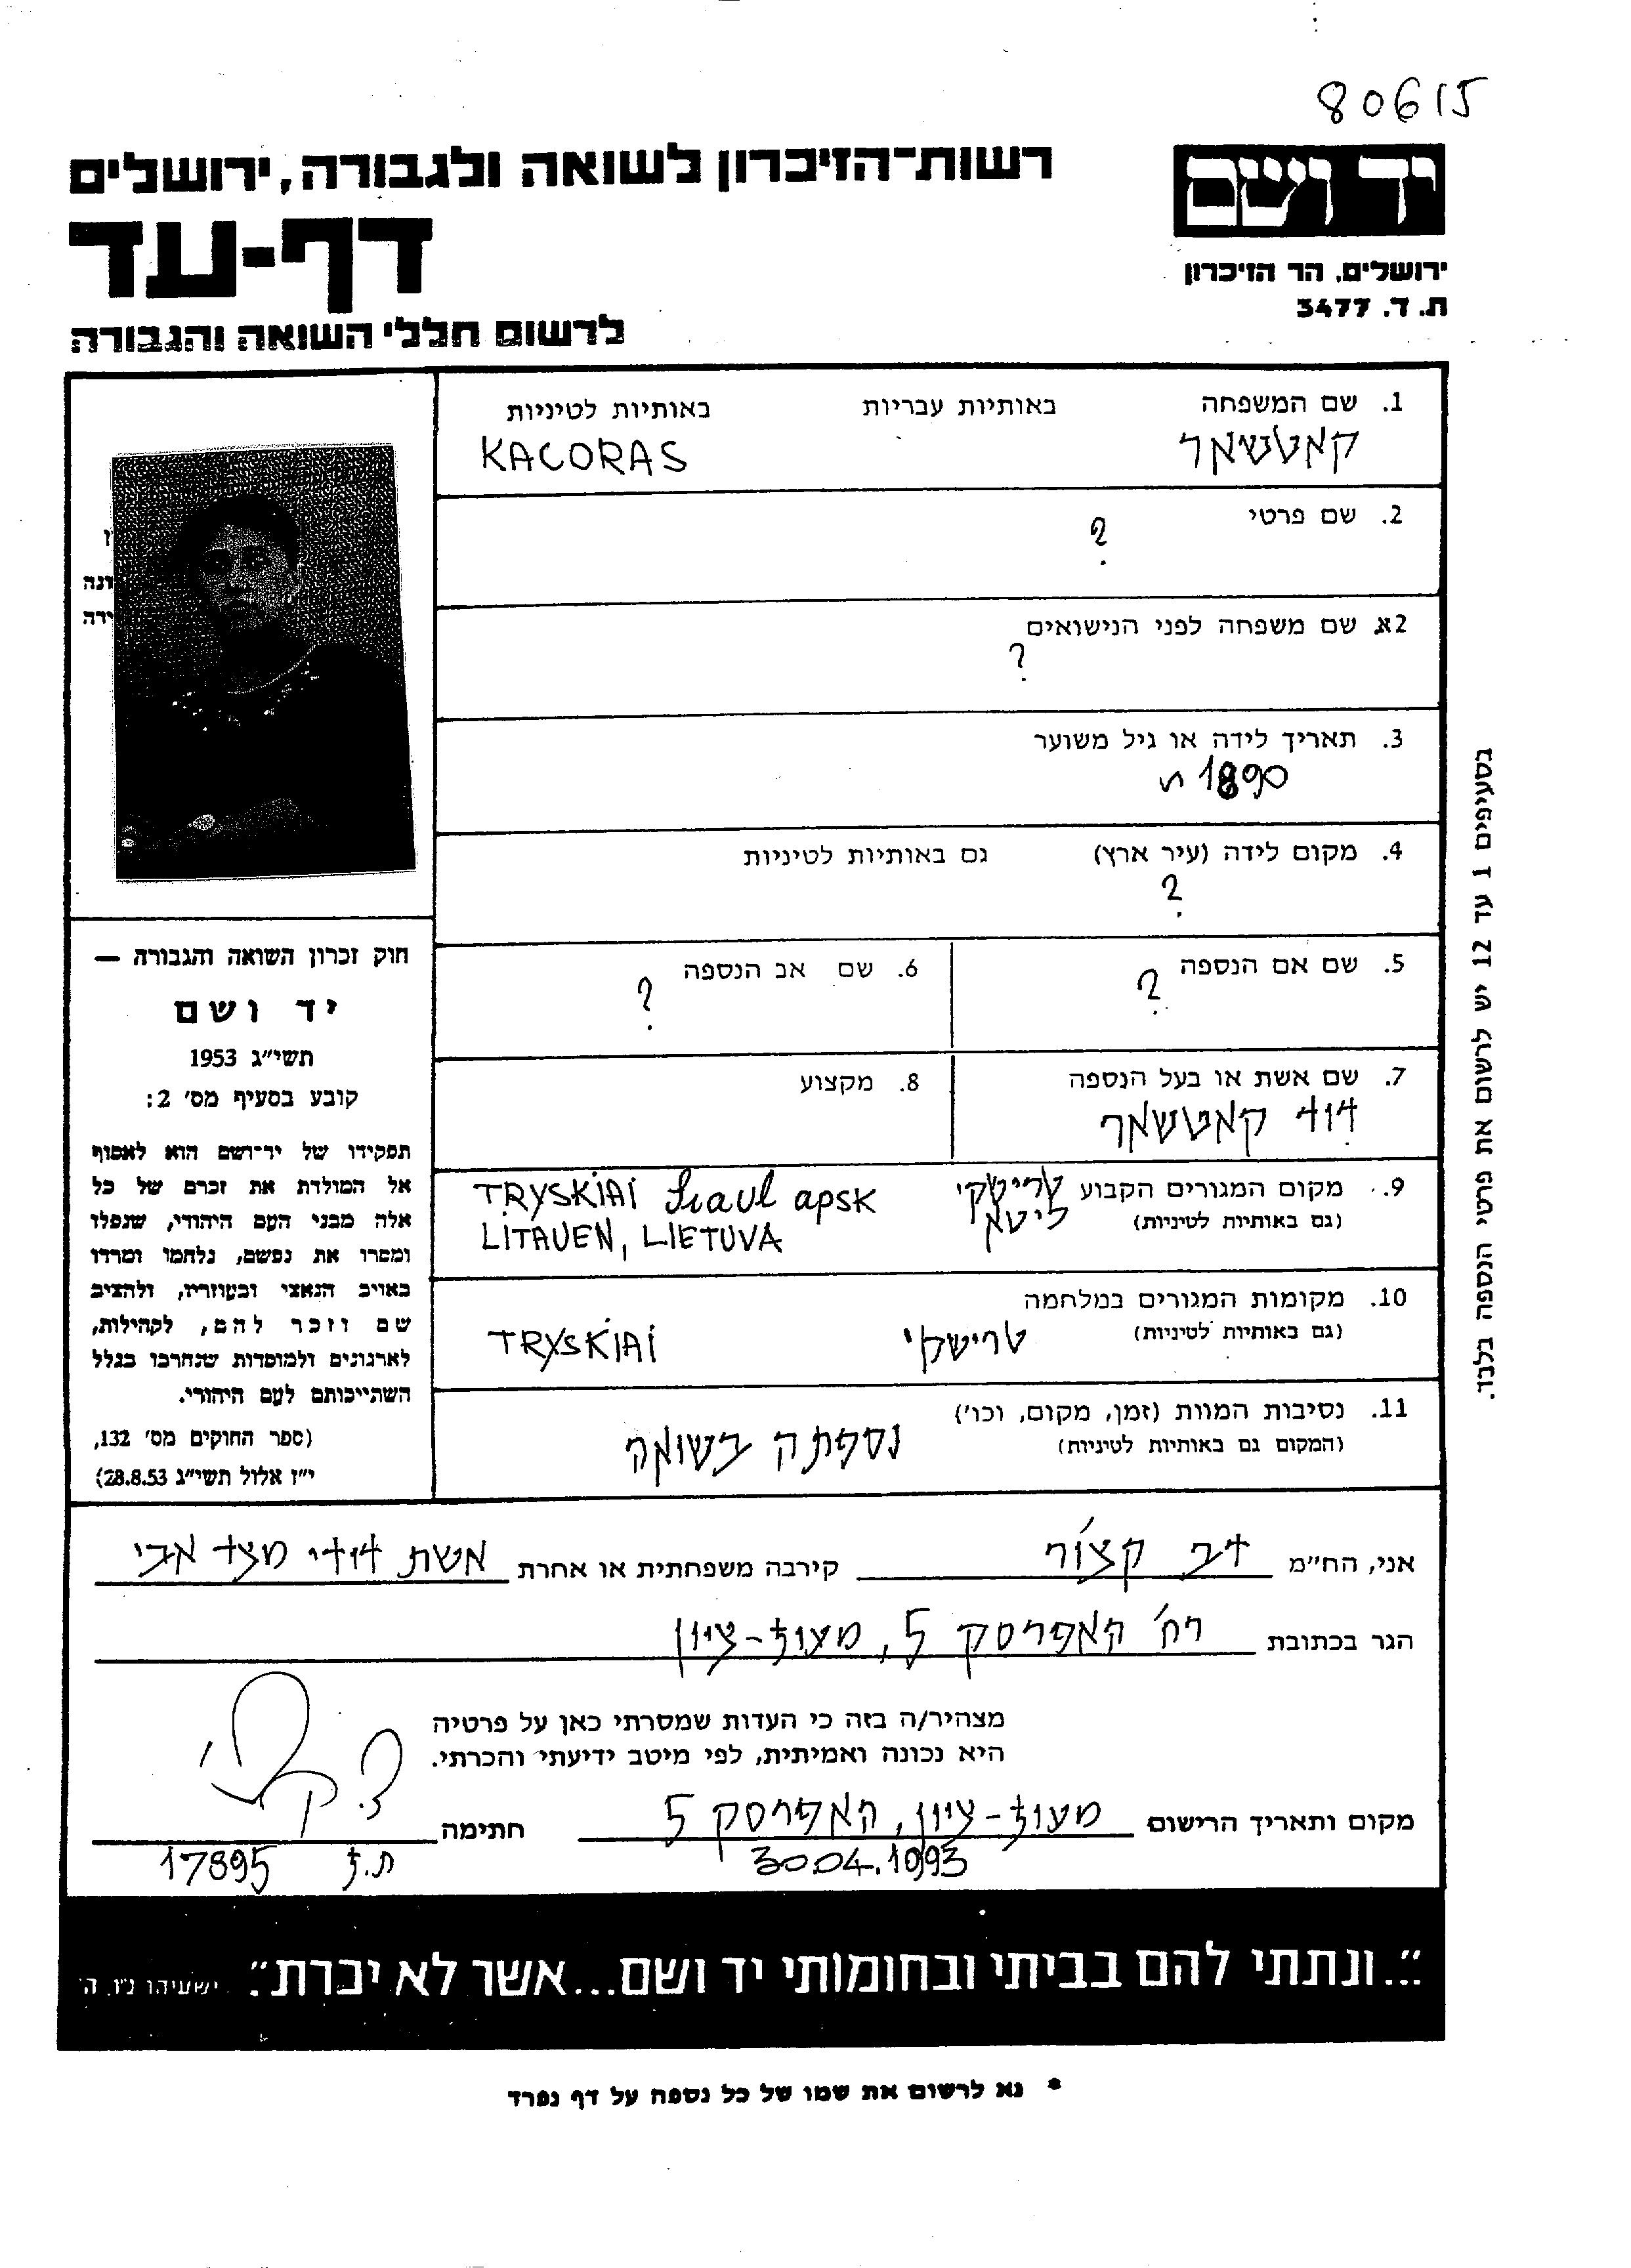 80615
יד ושם
ירושלים, הר הזיכרון
ת. ד. 3477
רשות-הזיכרון לשואה ולגבורה, ירושלים
דף-עד
לרשום חללי השואה והגבורה
1. שם המשפחה באותיות עבריות באותיות לטיניות
קאטשאר KACORAS
2. שם פרטי
?
2א. שם משפחה לפני הנישואים
?
3. תאריך לידה או גיל משוער
1890
4. מקום לידה (עיר ארץ) גם באותיות לטיניות
?
5. שם אם הנספה ?
6. שם אב הנספה ?
7. שם אשת או בעל הנספה
דוד קאטשאר
8. מקצוע
9. מקום המגורים הקבוע טרישקי TRYSKIAI Siaul apsk
(גם באותיות לטיניות) ליטא LITAUEN, LIETUVA
10. מקומות המגורים במלחמה
(גם באותיות לטיניות) טרישקי TRYSKIAI
11. נסיבות המוות (זמן, מקום, וכו')
(המקום גם באותיות לטיניות) נספתה בשואה
ונה
ידה
חוק זכרון השואה והגבורה —
יד ושם
תשי"ג 1953
קובע בסעיף מס' 2:
תפקידו של יד-ושם הוא לאסוף
אל המולדת את זכרם של כל
אלה מבני העם היהודי, שנפלו
ומסרו את נפשם, נלחמו ומרדו
באויב הנאצי ובעוזריו, ולהציב
שם וזכר להם, לקהילות,
לארגונים ולמוסדות שנחרבו בגלל
השתייכותם לעם היהודי.
(ספר החוקים מס' 132,
י"ז אלול תשי"ג 28.8.53)
בסעיפים 1 עד 12 יש לרשום את פרטי הנספה בלבד.
אני, הח"מ דב קצור קירבה משפחתית או אחרת אשת דודי מצד אבי
הגר בכתובת רח' האפרסק 5, מעוז-ציון
מצהיר/ה בזה כי העדות שמסרתי כאן על פרטיה
היא נכונה ואמיתית, לפי מיטב ידיעתי והכרתי.
מקום ותאריך הרישום מעוז-ציון, האפרסק 5 חתימה
30.04.1993 ת.ז 17895
"...ונתתי להם בביתי ובחומותי יד ושם...אשר לא יכרת". ישעיהו נ"ו, ה'
* נא לרשום את שמו של כל נספה על דף נפרד